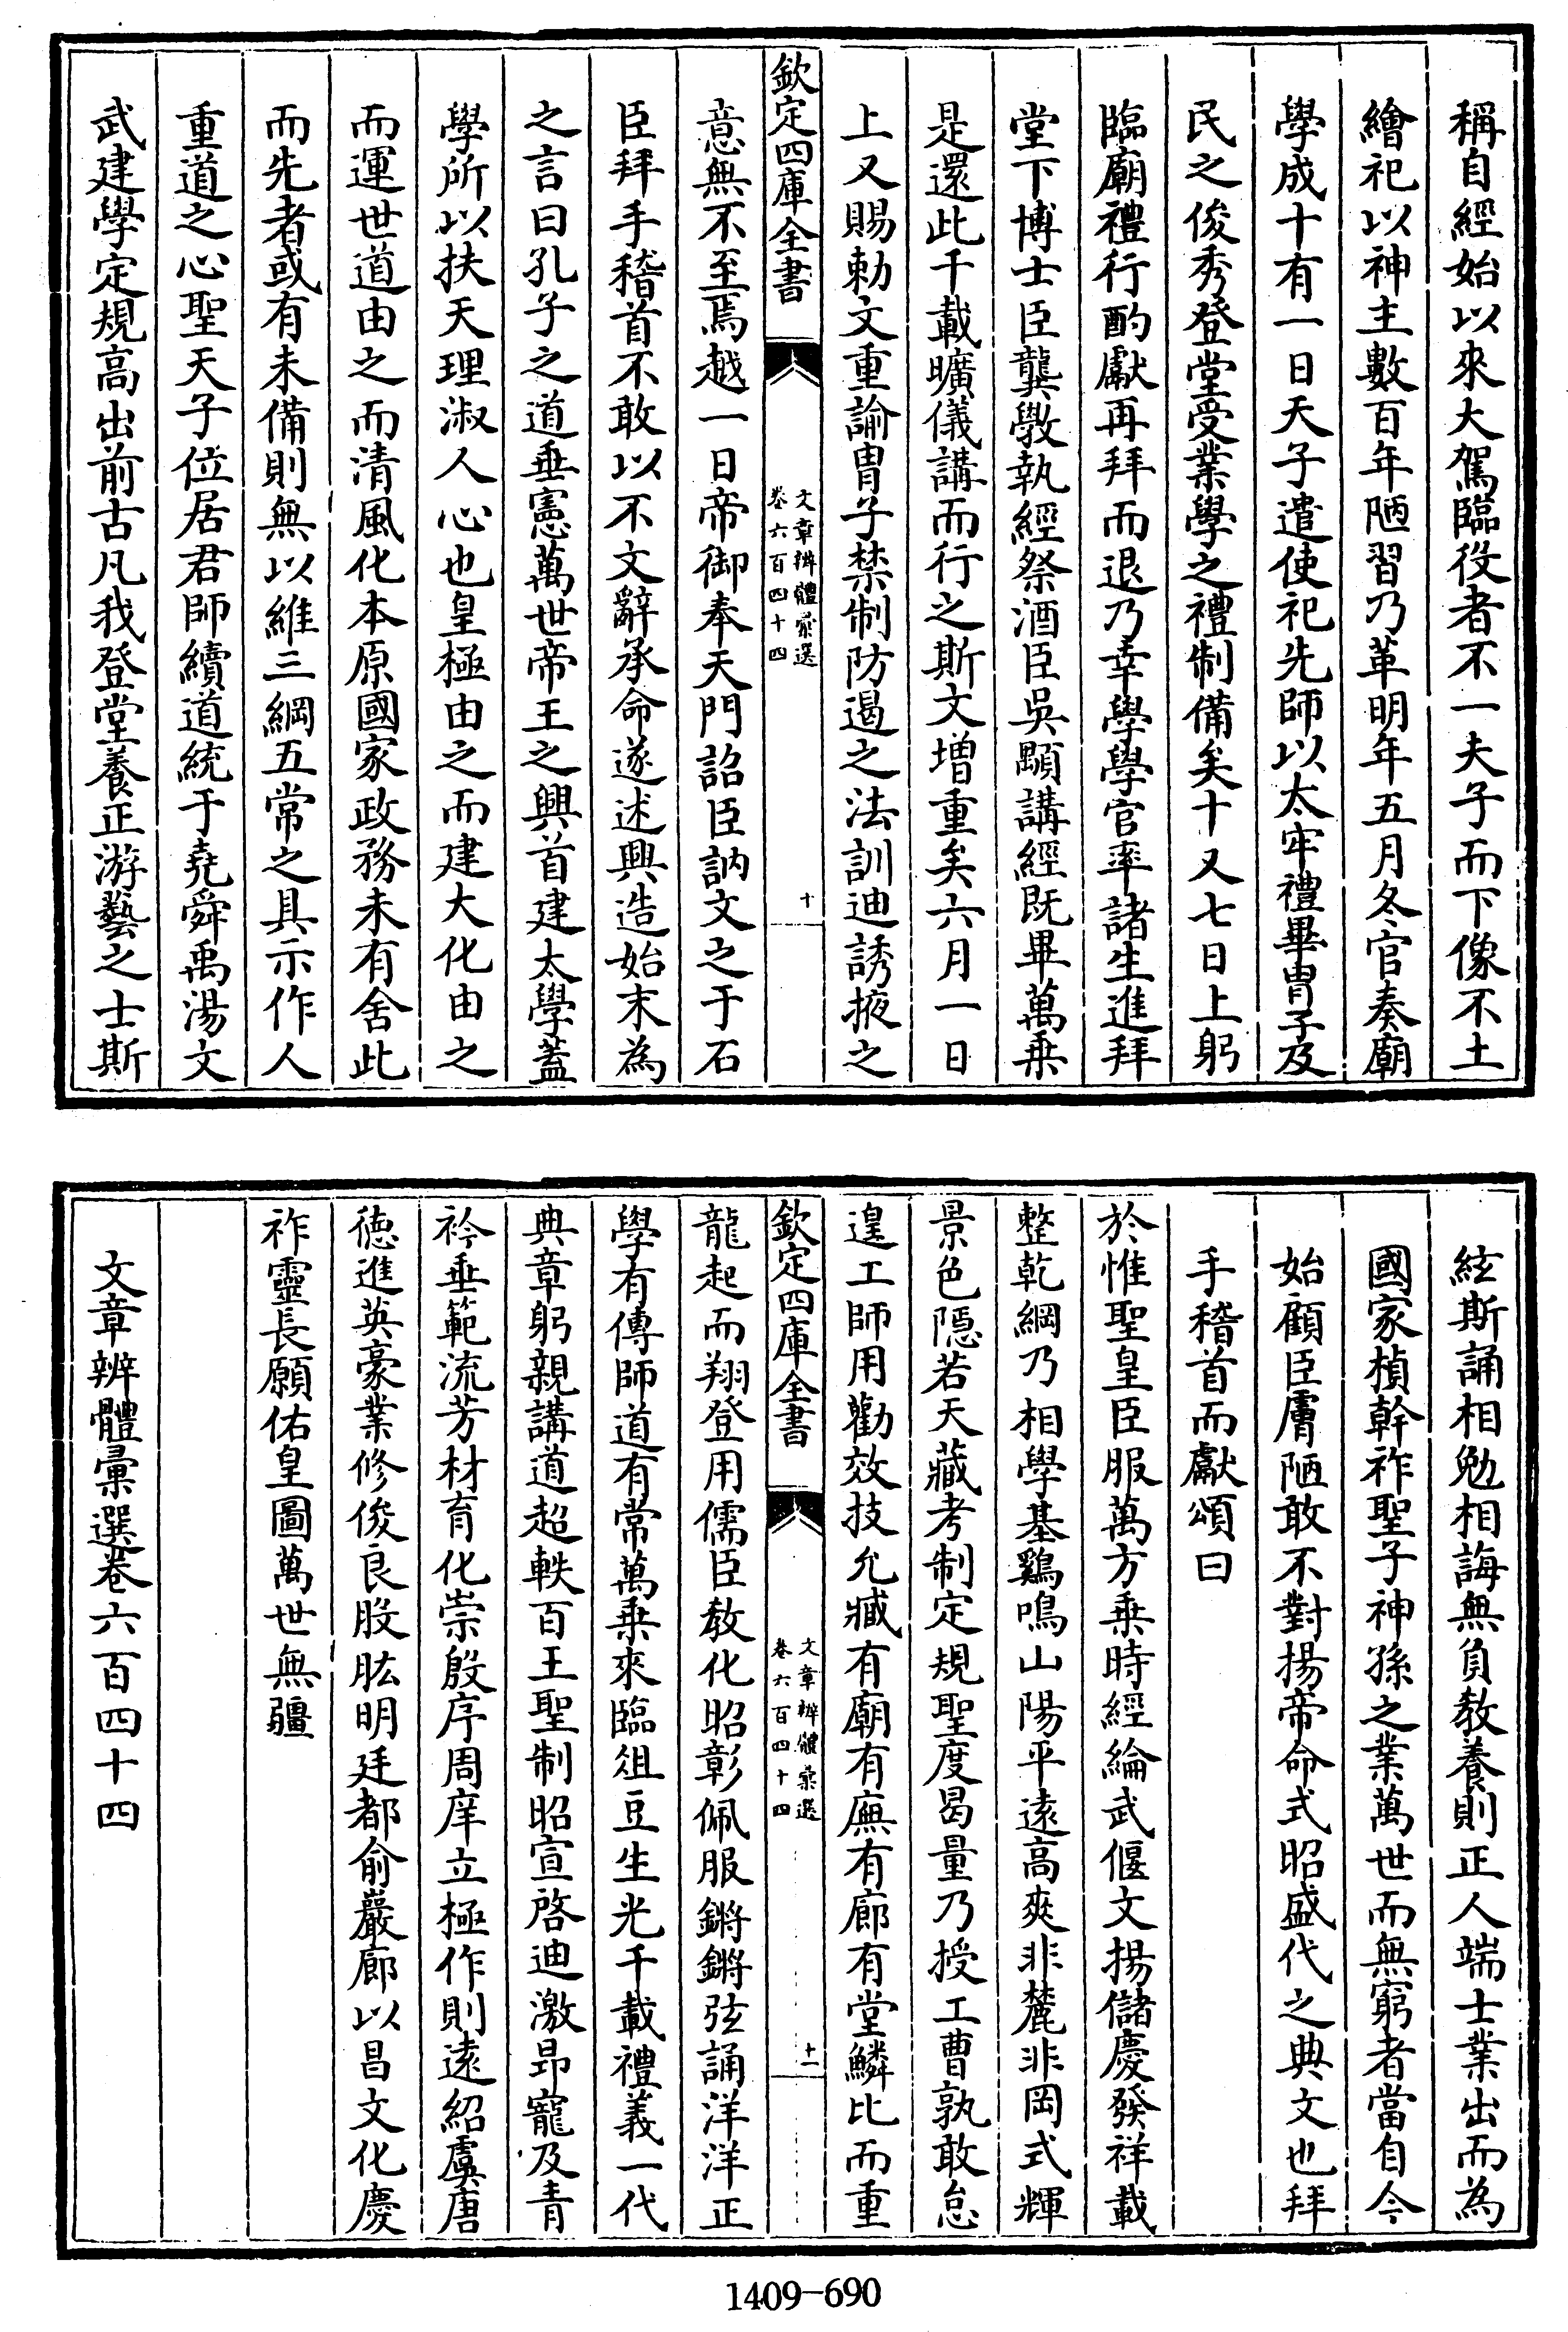 稱自經始以來大駕臨役者不一夫子而下像不土
繪祀以神主數百年陋習乃革明年五月冬官奏廟
學成十有一日天子遣使祀先師以太牢禮畢胄子及
民之俊秀登堂受業學之禮制備矣十又七日上躬
臨廟禮行酌獻再拜而退乃幸學學官率諸生進拜
堂下博士臣龔斆執經祭酒臣吳顒講經既畢萬乗
是還此千載曠儀講而行之斯文增重矣六月一日
上又賜勅文重諭胄子禁制防遏之法訓迪誘掖之
欽定四庫全書
文章辨體彙選
卷六百四十四
十
意無不至焉越一日帝御奉天門詔臣訥文之于石
臣拜手稽首不敢以不文辭承命遂述興造始末為
之言曰孔子之道垂憲萬世帝王之興首建太學蓋
學所以扶天理淑人心也皇極由之而建大化由之
而運世道由之而清風化本原國家政務未有舍此
而先者或有未備則無以維三綱五常之具示作人
重道之心聖天子位居君師續道統于堯舜禹湯文
武建學定規高出前古凡我登堂養正游藝之士斯
絃斯誦相勉相誨無負教養則正人端士業出而為
國家楨幹祚聖子神孫之業萬世而無窮者當自今
始顧臣膚陋敢不對揚帝命式昭盛代之典文也拜
手稽首而獻頌曰
於惟聖皇臣服萬方乗時經綸武偃文揚儲慶發祥載
整乾綱乃相學基鷄鳴山陽平遠高爽非麓非岡式輝
景色隱若天藏考制定規聖度曷量乃授工曹孰敢怠
遑工師用勸效技允臧有廟有廡有廊有堂鱗比而重
欽定四庫全書
文章辨體彙選
卷六百四十四
十一
龍起而翔登用儒臣教化昭彰佩服鏘鏘弦誦洋洋正
學有傳師道有常萬乗來臨俎豆生光千載禮義一代
典章躬親講道超軼百王聖制昭宣啓迪激昂寵及青
衿垂範流芳材育化崇殷序周庠立極作則遠紹虞唐
德進英豪業修俊良股肱明廷都俞巖廊以昌文化慶
祚靈長願佑皇圖萬世無疆
文章辨體彙選卷六百四十四
1409-690